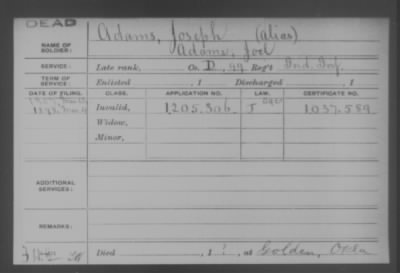 DEAD
NAME OF SOLDIER: Adams, Joseph (alias)
Adams, Joel
SERVICE: Late rank, Co. D, 99 Reg't Ind. Inf.
TERM OF SERVICE: Enlisted , 1 Discharged , 1
DATE OF FILING. CLASS. APPLICATION NO. LAW. CERTIFICATE NO.
Invalid, 1,205,306 J 1,037,589
Widow,
Minor,
ADDITIONAL SERVICES:
REMARKS:
Died , 1 , at Golden, Okla